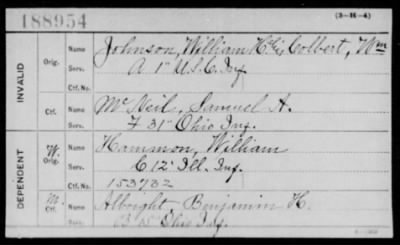 188954
(3-H-4)
INVALID
Orig.
Name Johnson, William H. alias Colbert, Wm
Serv. A 1" U.S.C. Inf.
Ctf. No.
Ctf.
Name McNeil, Samuel A.
Serv. F 31" Ohio Inf.
DEPENDENT
W.
Orig.
Name Hammon, William
Serv. C 12" Ill. Inf.
Ctf. No. 153782
M.
Ctf.
Name Albright Benjamin H.
Serv. B 15" Ohio Inf.